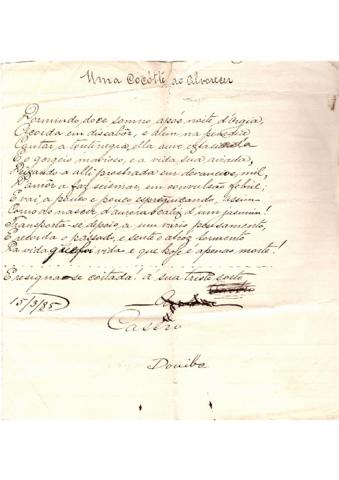 Uma Cocótte, ao Alvorecer
Dormindo, doce somno após noite d'orgia,
Acorda em disabôr, e alem na
Cantar, a toutinegra, ella ouve
E o gorgeio mavioso, e a vida, sua
Deixando-a alli prostrada em devaneios, mil,
D'amôr a faz scismar, em convulsão febril,
E vai, a pouco e pouco espreguiçando, assim
Como do nascer d'aurora feliz d'um jasmim!
Transporta-se depois, a um vario pensamento,
E recorda o passado, e sente o atroz tormento
Da vida que foi vida e que hoje é apenas, morte!
E resigna-se coitada á sua triste sorte
15/3/85
Castro